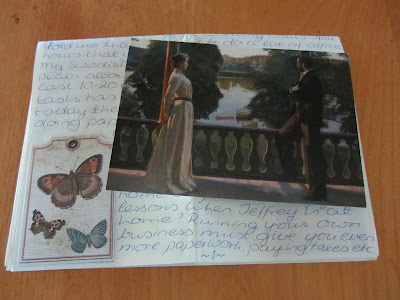 told me that to do a lot of office
hours that
my Swedish
plain about
last 10-20
tasks has
today the
doing pap
home
lessons when Jeffrey is at
home? Running your own
business must give you even
more paperwork, paying taxes etc
~1~